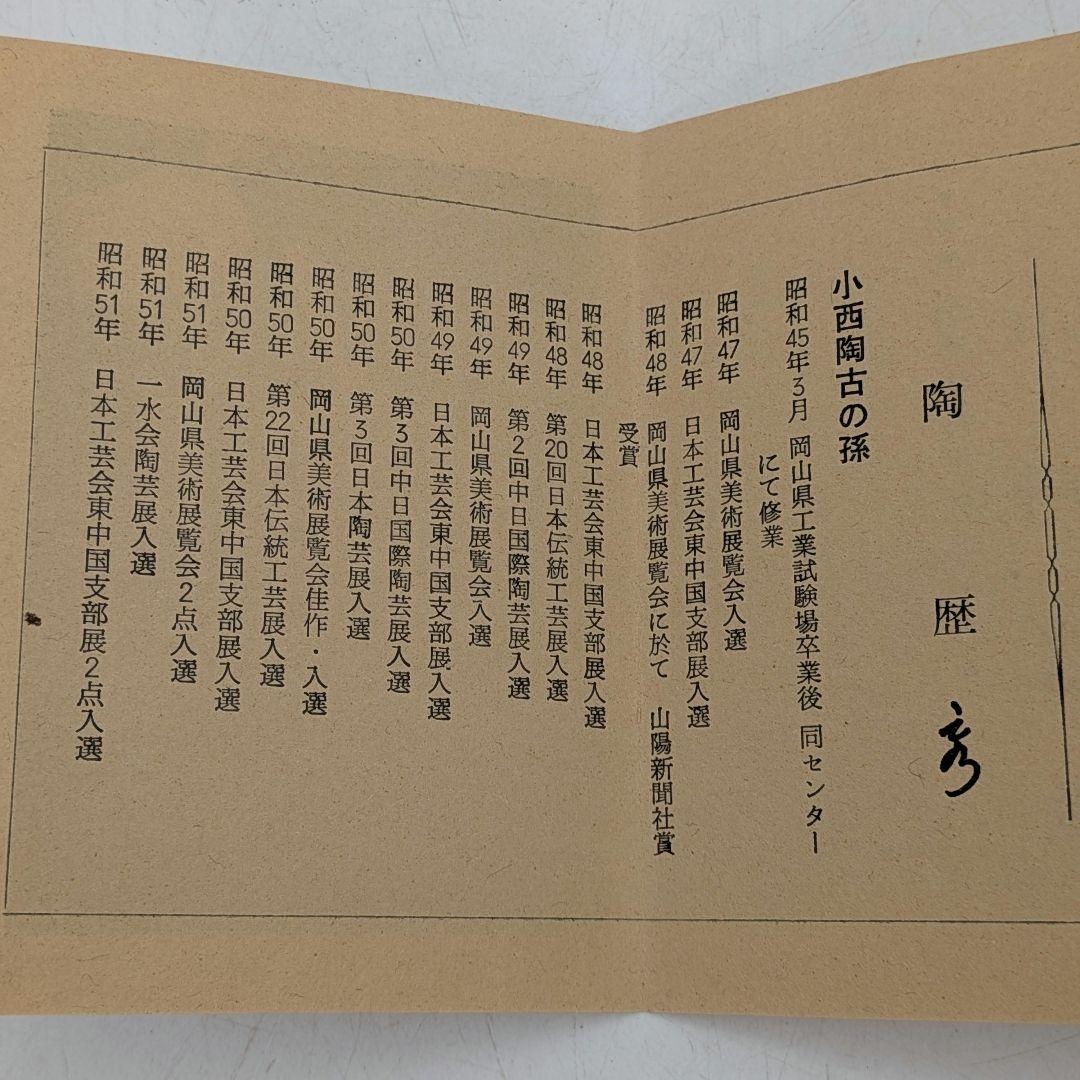 陶歴
小西陶古の孫
昭和45年3月 岡山県工業試験場卒業後 同センター
にて修業
昭和47年 岡山県美術展覧会入選
昭和47年 日本工芸会東中国支部展入選
昭和48年 岡山県美術展覧会に於て 山陽新聞社賞
受賞
昭和48年 日本工芸会東中国支部展入選
昭和48年 第20回日本伝統工芸展入選
昭和49年 第2回中日国際陶芸展入選
昭和49年 岡山県美術展覧会入選
昭和49年 日本工芸会東中国支部展入選
昭和50年 第3回中日国際陶芸展入選
昭和50年 第3回日本陶芸展入選
昭和50年 岡山県美術展覧会佳作・入選
昭和50年 第22回日本伝統工芸展入選
昭和50年 日本工芸会東中国支部展入選
昭和51年 岡山県美術展覧会2点入選
昭和51年 一水会陶芸展入選
昭和51年 日本工芸会東中国支部展2点入選